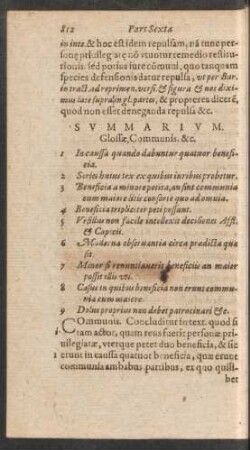 812 Pars Sexta
in inte. & hoc est idem repulsam, nã tunc per-
sonę priuilegiatę nõ vtuntur remedio restitu-
tionis. sed potius iure cõmuni, quo tanquam
species defensionis datur repulsa, vt per Bar.
in tract. ad reprimen. versi. & figura & nos dixi-
mus late supra in gl. partes, & propterea dicere,
quod non esset deneganda repulsa &c.
SVMMARIVM.
Glossæ, Communis. &c.
1 In caussa quando dabuntur quatuor benefi-
cia.
2 Series huius tex. ex quibus iuribus probetur.
3 Beneficia a minore petita, an sint communia
cum maiore litis consorte quo ad omnia.
4 Beneficia tripliciter peti possunt.
5 Vestius non facile intellexit decisiones Afflt.
& Capicii.
6 Moderna obseruantia circa prædicta qua
sit.
7 Minor si renuntiauerit beneficiis an maior
possit illis vti.
8 Casus in quibus beneficia non erunt commu-
nia cum maiore.
9 Dolus proprius non debet patrocinari &c.
Communis. Concluditur in text. quod si
tam actor, quam reus fuerit personæ pri-
uilegiatæ, vterque petet duo beneficia, & sic
1 erunt in caussa quatuor beneficia, quæ erunt
communia ambabus partibus, ex quo quili-
bet